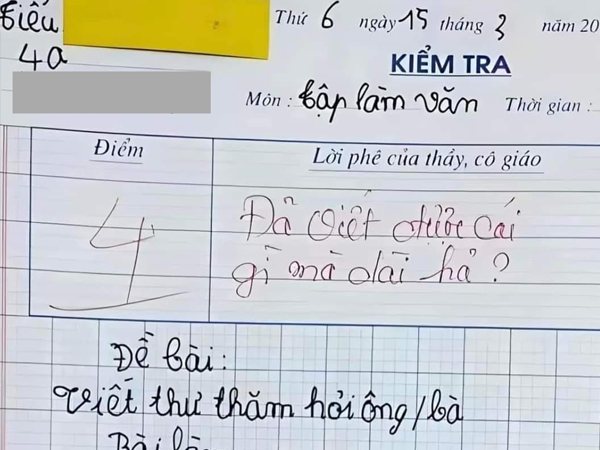 Tiểu
Thứ 6 ngày 15 tháng 3 năm 20
4a
KIỂM TRA
Môn : tập làm văn Thời gian :
Điểm
Lời phê của thầy, cô giáo
4
Đã viết được cái
gì mà dài hả?
Đề bài:
Viết thư thăm hỏi ông/bà
Bài